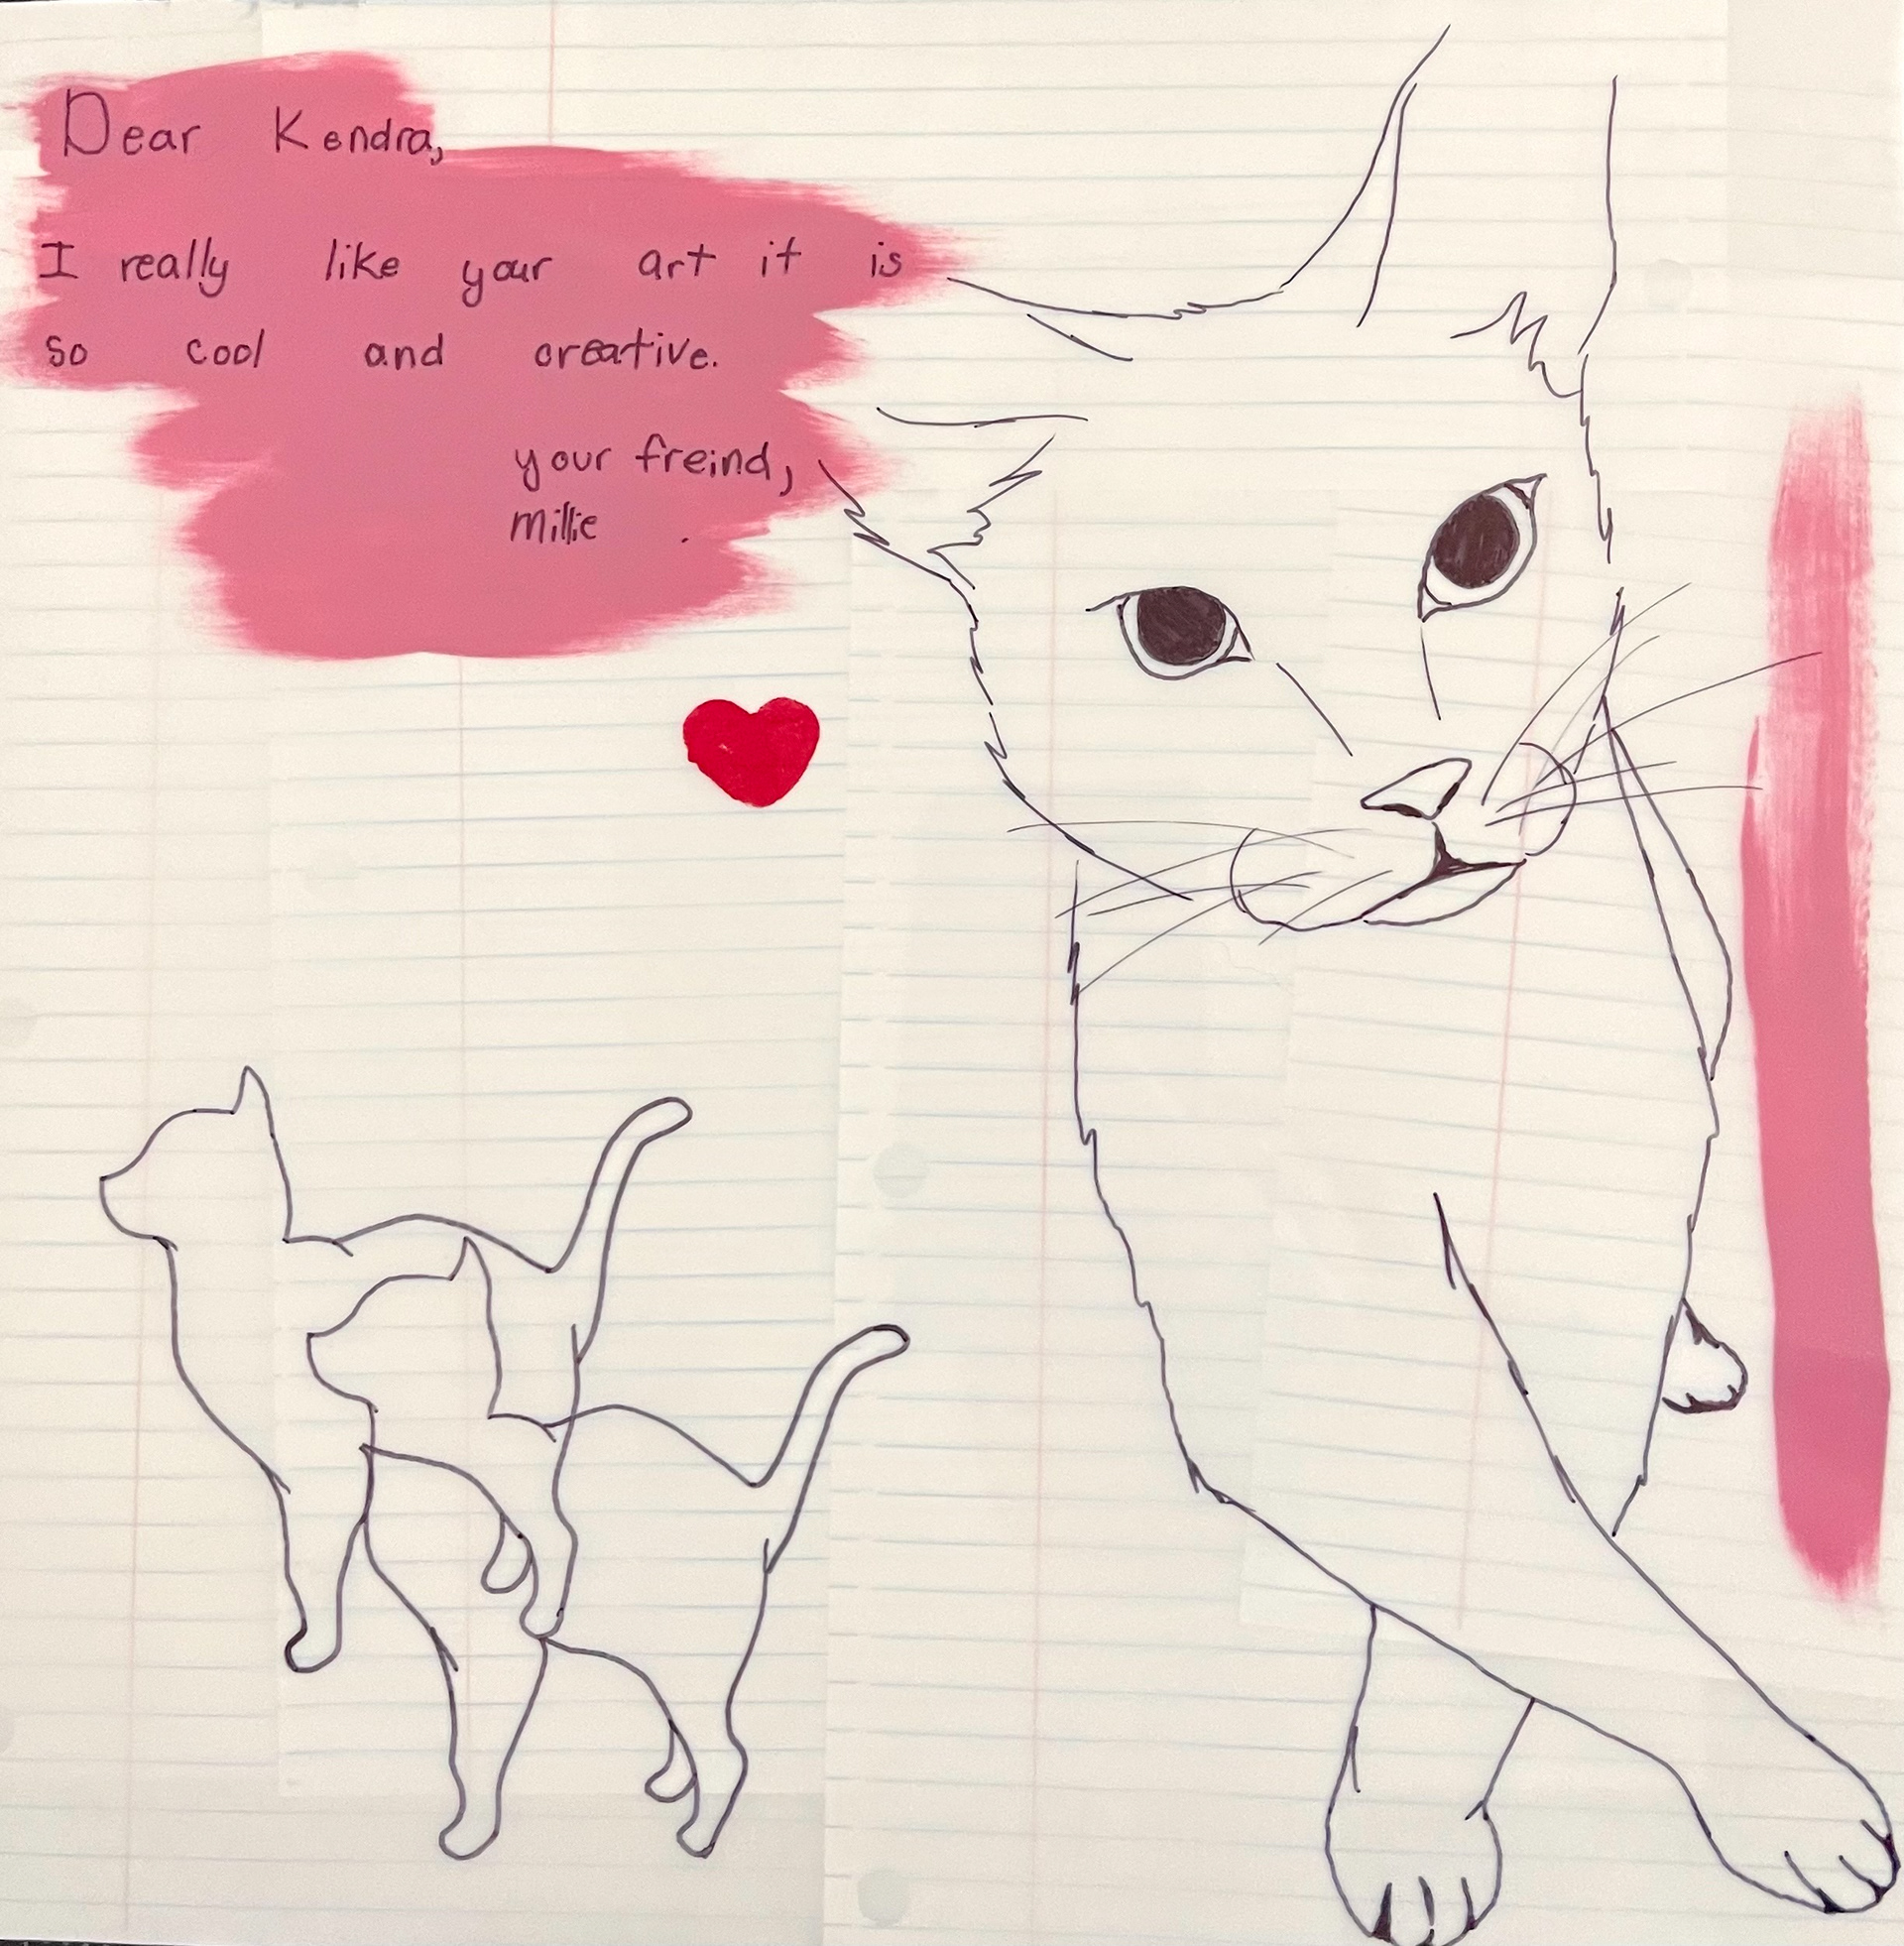 Dear Kendra,
I really like your art it is
so cool and creative.
your freind,
Millie .